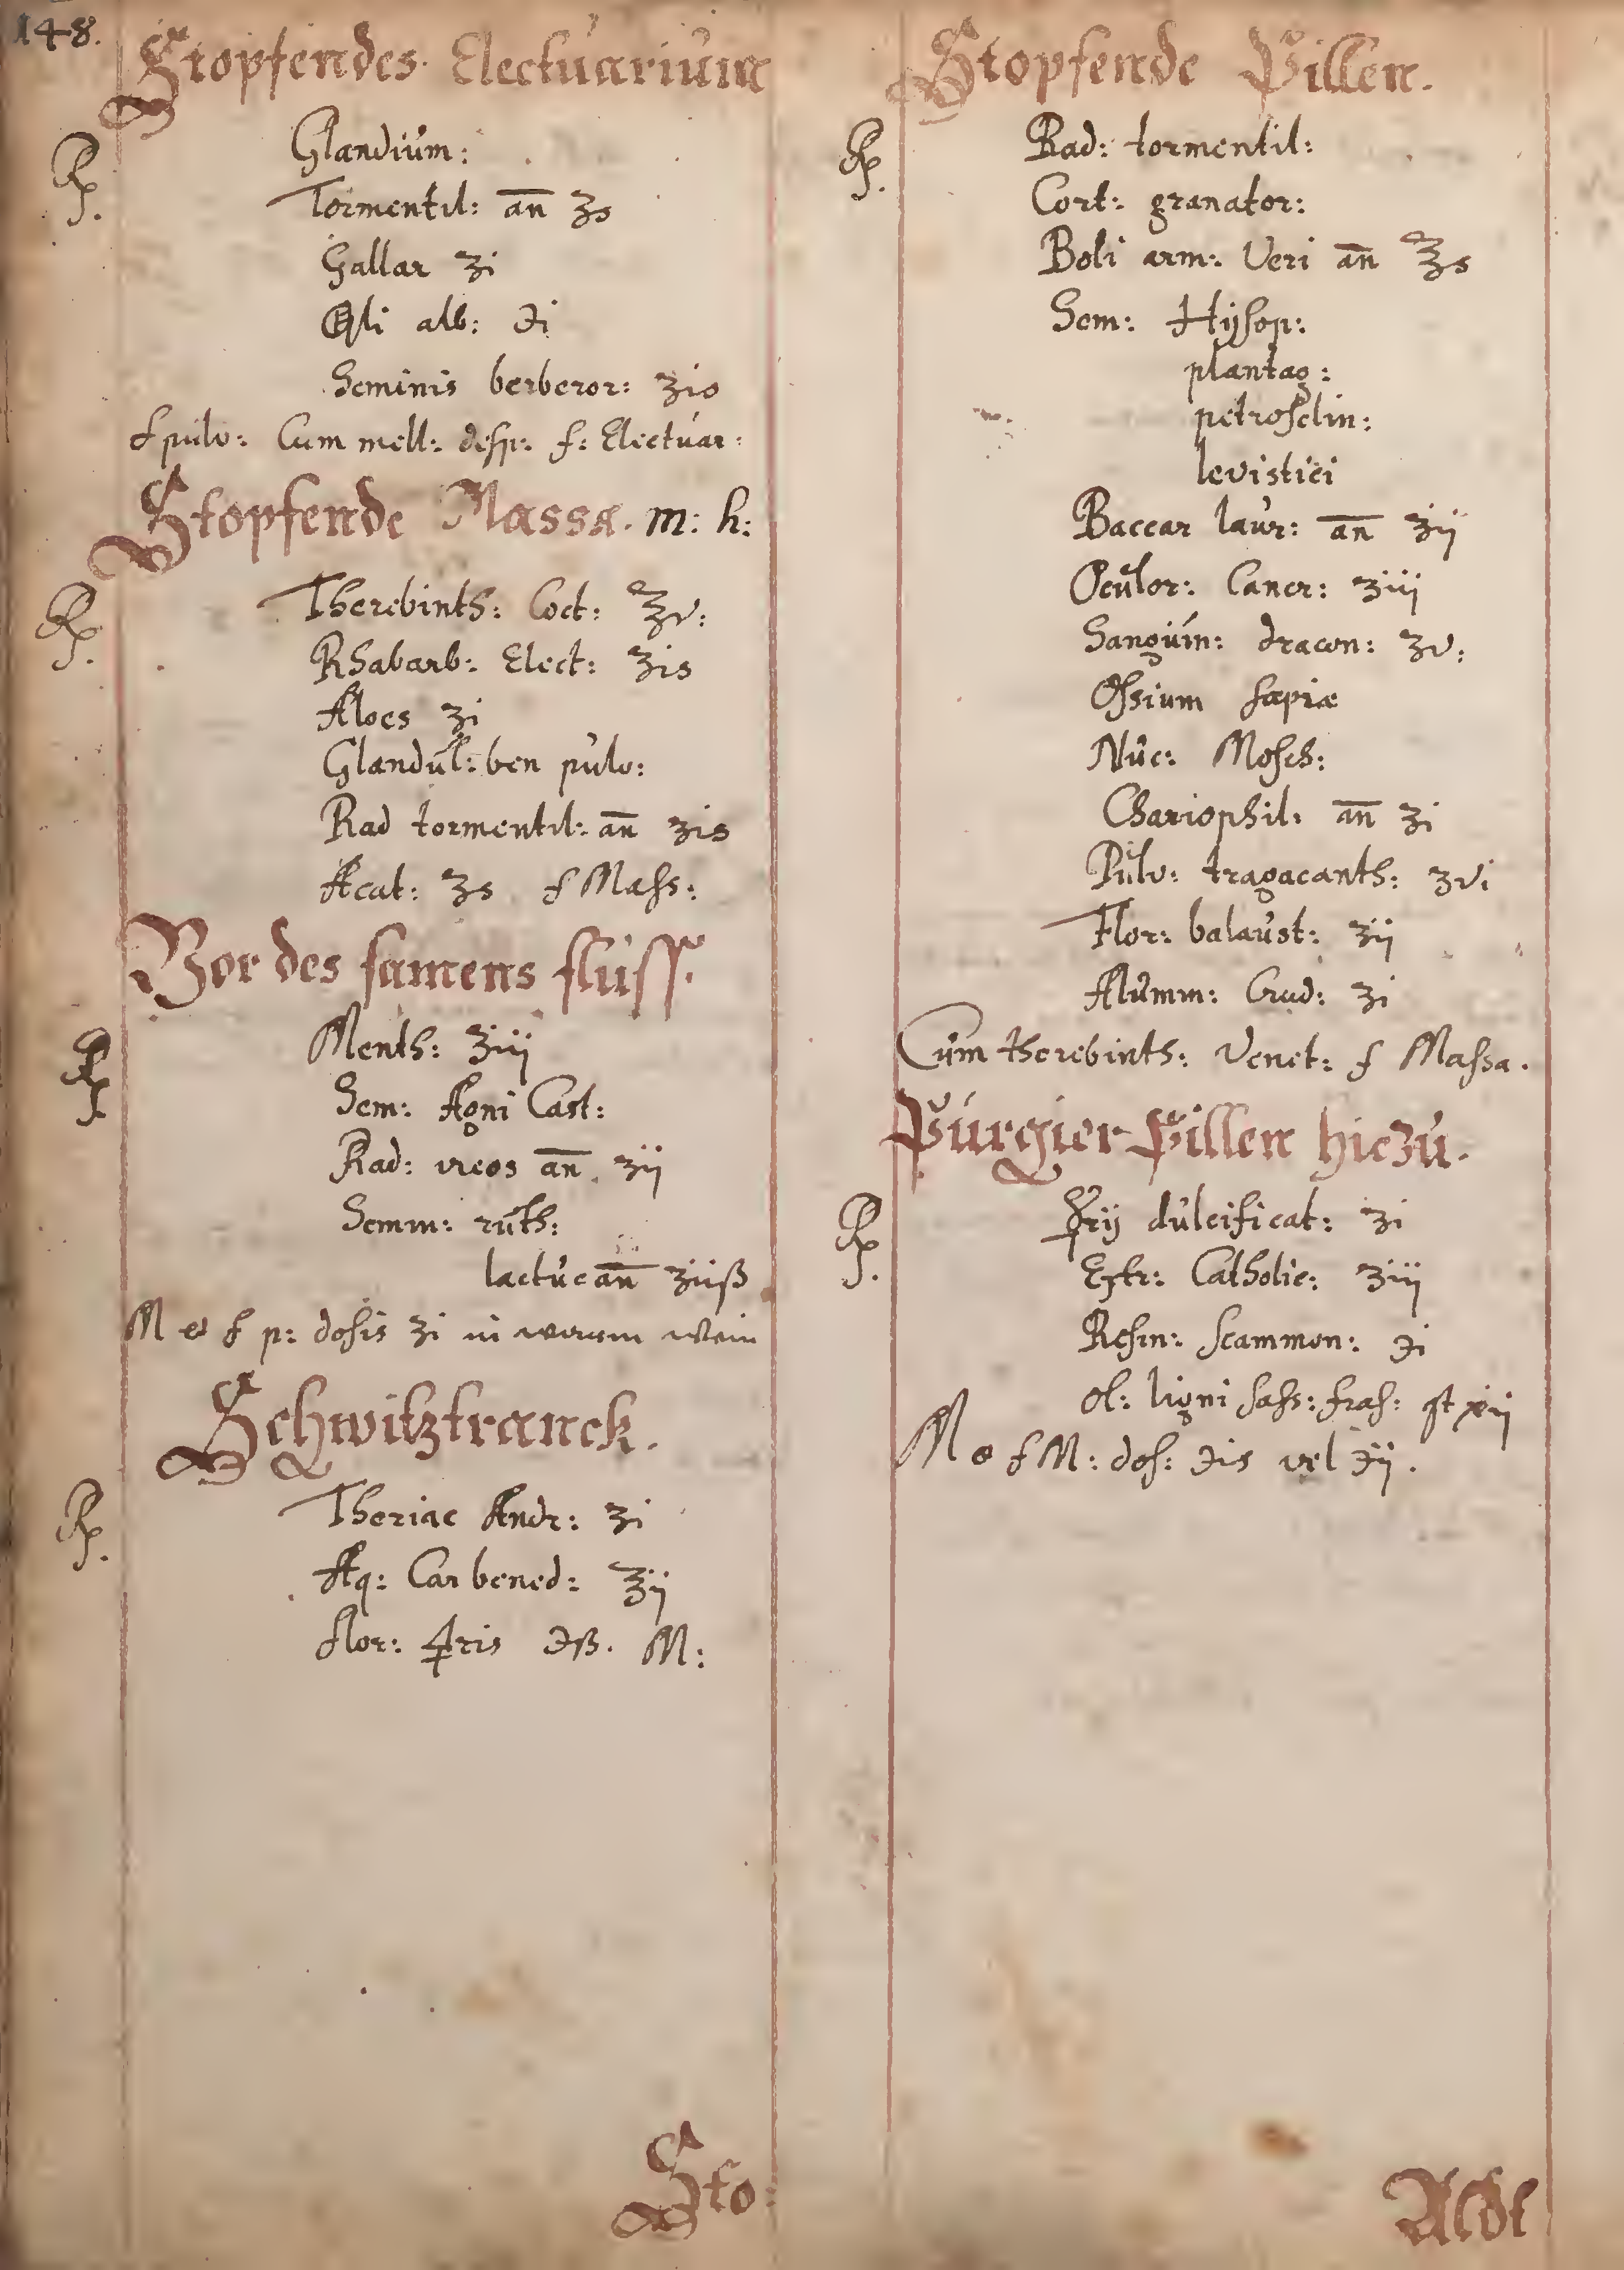 148.
Stopfendes Electuarium
℞. Glandium:
Tormentil: an̄ ʒs
Gallar ʒi
alb: ℈i
Seminis berberor: ʒis
f pulv: Cum mell: desp: f: Electuar:
Stopfende Massæ. m: h:
℞. Therebinth: Coct: ℥v:
Rhabarb: Elect: ʒis
Aloes ʒi
Glandul: ben pulv:
Rad tormentil: an̄ ʒis
Acat: ʒs f Mass:
Vor des samens fluss.
℞ Menth: ʒiij
Sem: Agni Cast:
Rad: an̄. ʒij
Semm: ruth:
lactuc an̄ ʒiiß
M et f p: dosis ʒi in warm wein
Schwitztranck.
℞. Theriac Andr: ʒi
Aq: Car bened: ℥ij
flor: 🜍ris ℈ß. M:
Sto:
Stopfende Pillen.
℞. Rad: tormentil:
Cort: granator:
Boli arm: Veri an̄ ℥s
Sem: Hÿsop:
plantag:
petroselin:
levistici
Baccar laur: an̄ ʒij
Oculor: Cancr: ʒiij
Sanguin: dracon: ʒv:
Ossium sæpiæ
Nuc: Mosch:
Chariophil: an̄ ʒi
Pulv: tragacanth: ʒvi
Flor: balaust: ʒij
Alumm: Crud: ʒi
Cum therebinth: Venet: f Massa.
Purgier Pillen hiezu.
℞. ☿rij dulcificat: ʒi
Extr: Catholic: ʒiij
Resin: Scammon: ℈i
ol: ligni sass: fras: gt xij
M et f M: dos: ℈is vel ℈ij.